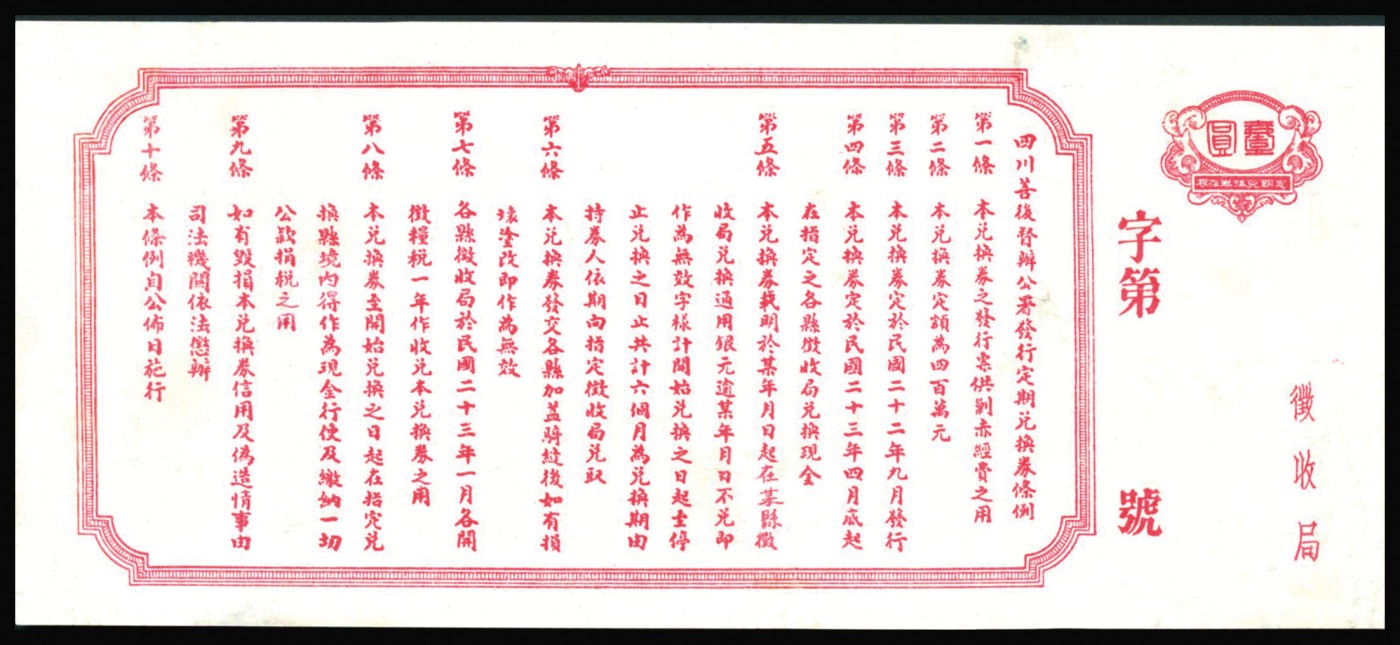 徵收局
壹圓
定期兌換券存根
字第 號
四川善後督辦公署發行定期兌換券條例
第一條 本兌換券之發行專供剿赤經費之用
第二條 本兌換券定額為四百萬元
第三條 本兌換券定於民國二十二年九月發行
第四條 本兌換券定於民國二十三年四月底起
在指定之各縣徵收局兌換現金
第五條 本兌換券載明於某年月日起在某縣徵
收局兌換通用銀元逾某年月日不兌即
作為無效字樣計開始兌換之日起至停
止兌換之日止共計六個月為兌換期由
持券人依期向指定徵收局兌取
第六條 本兌換券發交各縣加蓋騎縫後如有損
壞塗改即作為無效
第七條 各縣徵收局於民國二十三年一月各開
徵糧稅一年作收兌本兌換券之用
第八條 本兌換券至開始兌換之日起在指定兌
換縣境內得作為現金行使及繳納一切
公款捐稅之用
第九條 如有毀損本兌換券信用及偽造情事由
司法機關依法懲辦
第十條 本條例自公佈日施行